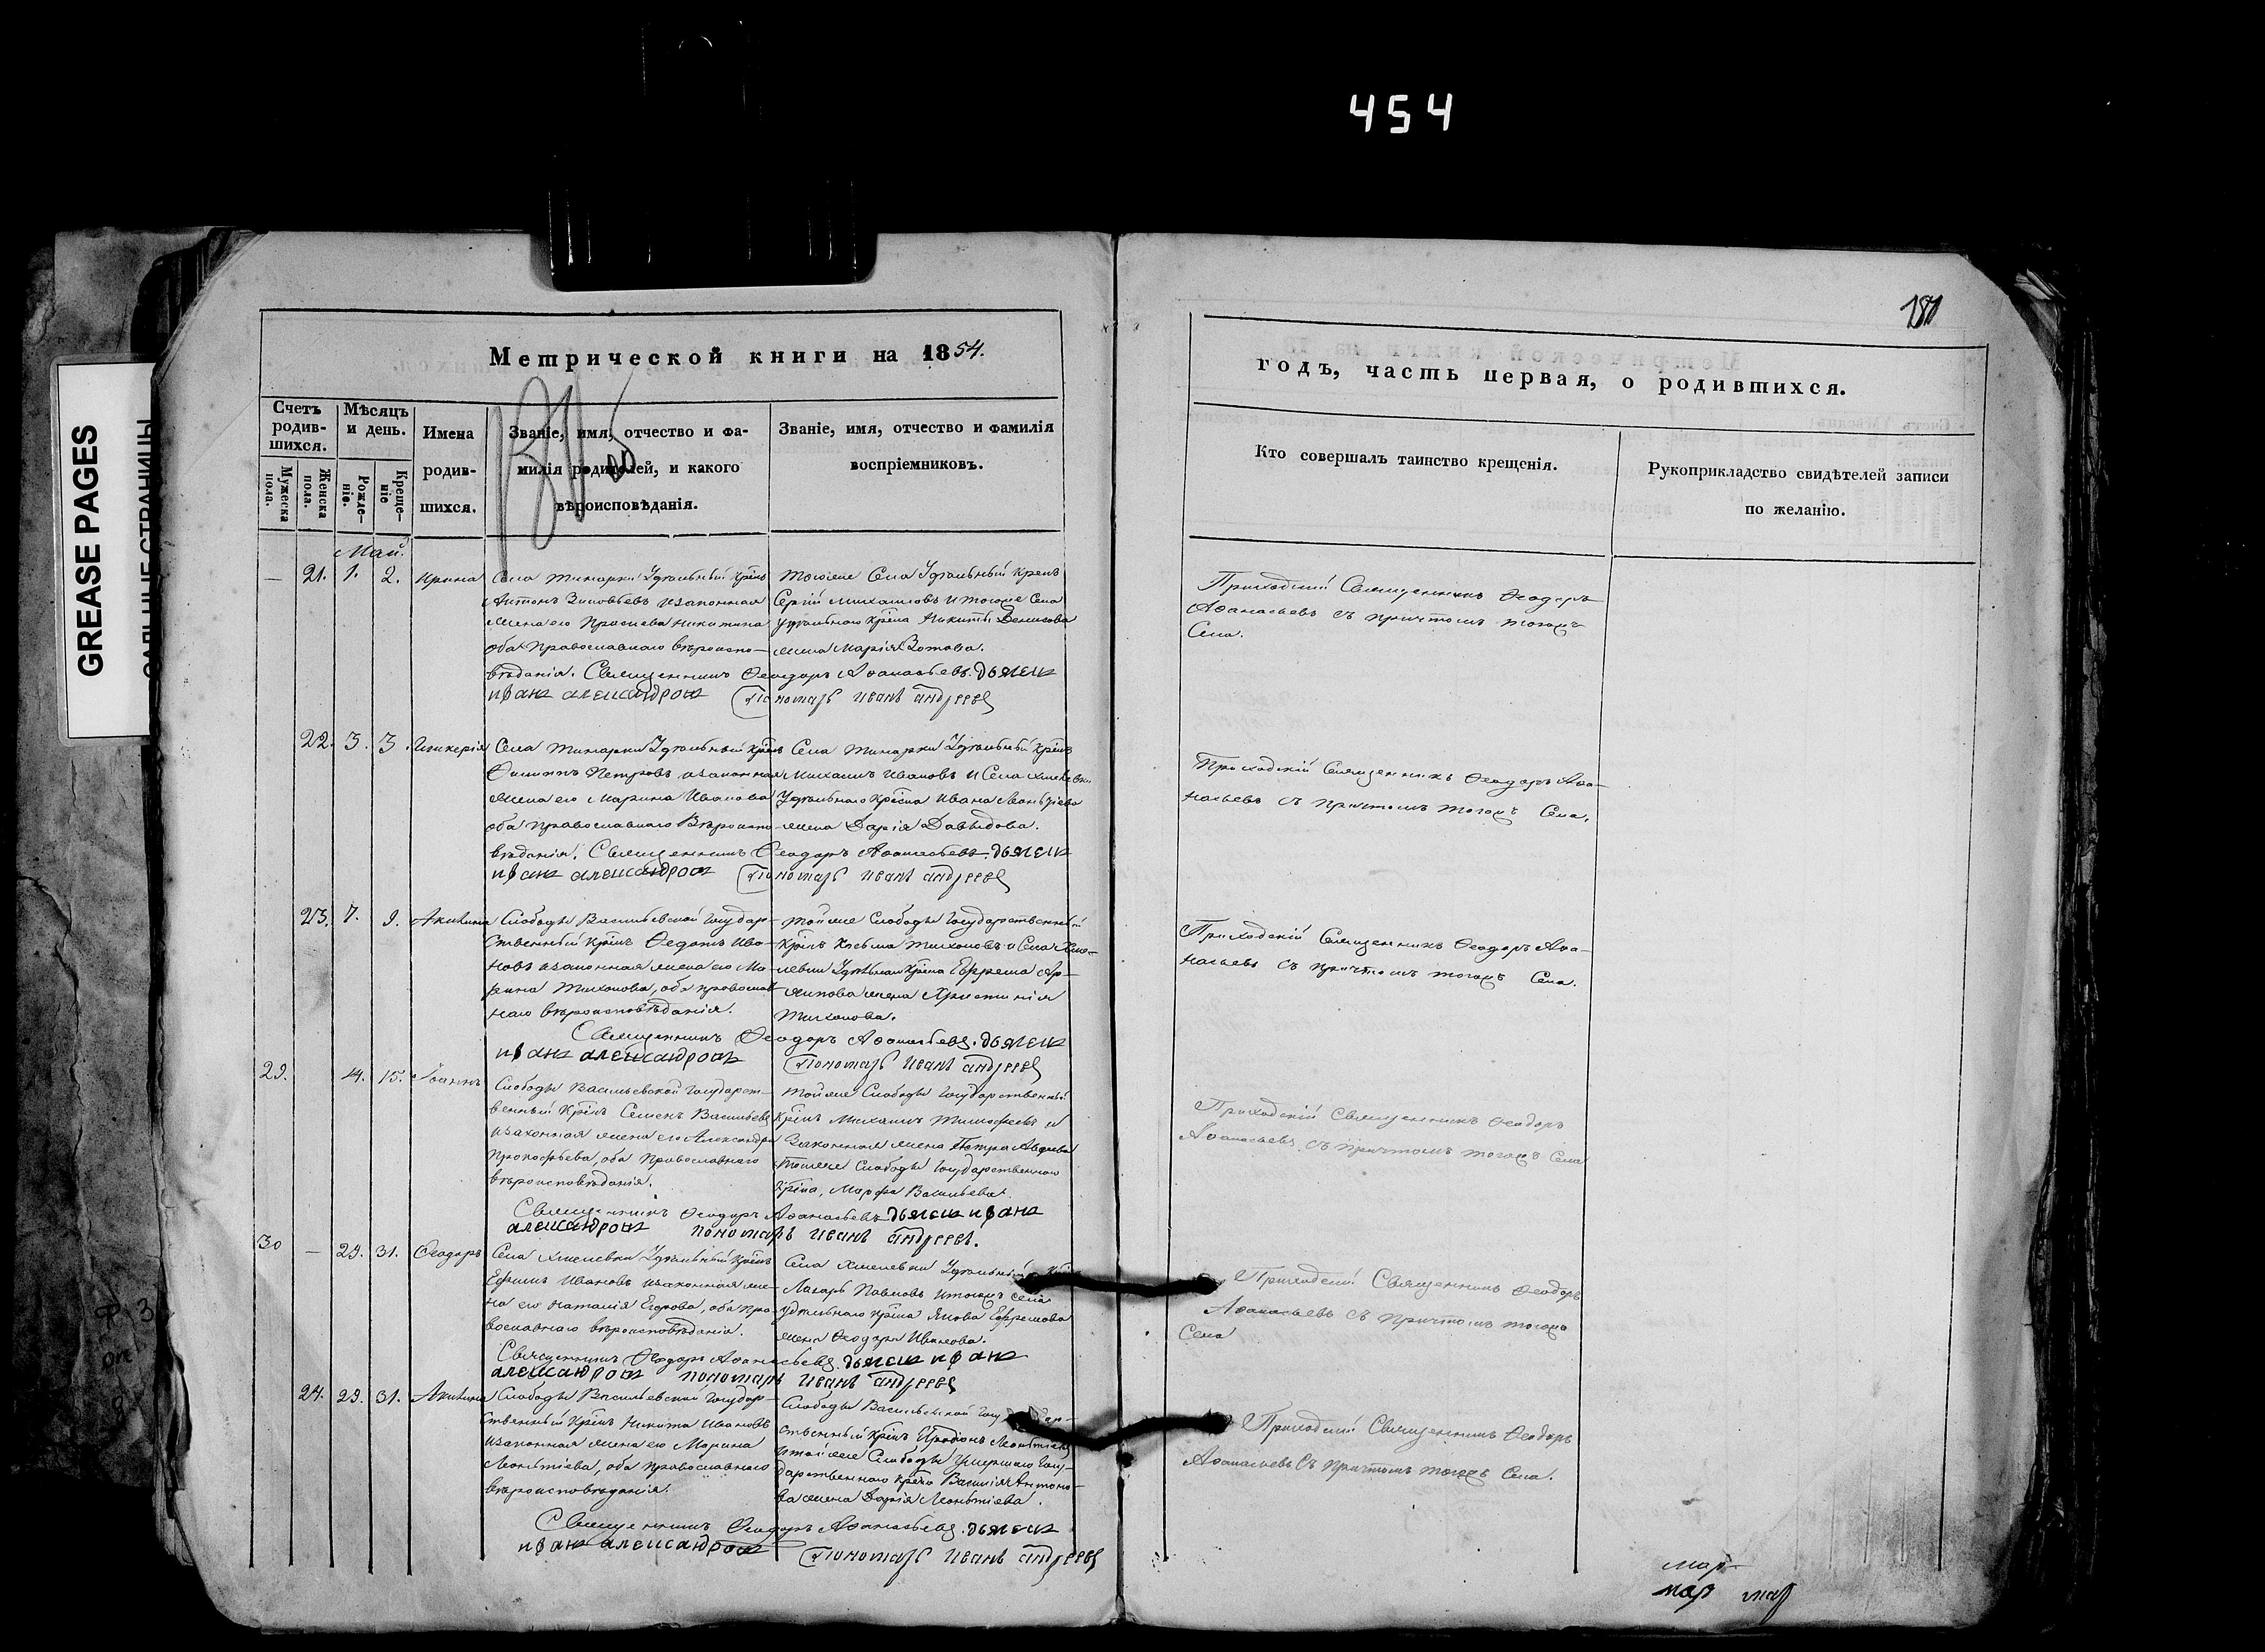 454
GREASE PAGES
САЛЬНЫЕ СТРАНИЦЫ
181
Метрической книги на 1854.
годъ, часть первая, о родившихся.
Счетъ родив-шихся.
Мужеска пола.
Женска пола.
Мѣсяцъ и день.
Рожде-ніе.
Креще-ніе
Имена
родив-
шихся.
Званіе, имя, отчество и фа-
милія родителей, и какого
вѣроисповѣданія.
Званіе, имя, отчество и фамилія
воспріемниковъ.
Кто совершалъ таинство крещенія.
Рукоприкладство свидѣтелей записи
по желанію.
Май.
— 21. 1. 2. Ирина
Села Удѣльный Крінъ
Антонъ Зиновьевъ изаконная
жена его Праскева Никитина
оба Православнаго вѣроиспо-
вѣданія. Священникъ Ѳеодоръ Аѳанасьевъ. дьячекъ
иванъ александровъ Пономарь иванъ андреевъ
Тогоже Села Удѣльный Крінъ
Сергій Михаиловъ и тогоже Села
удѣльнаго Кріна Никиты Денисова
жена Марія Зотова.
Приходскій Священникъ Ѳеодоръ
Аѳанасьевъ съ причтомъ тогожъ
Села.
22. 3. 3. Гликерія
Села Удѣльный Крінъ
Филипъ Петровъ изаконная
жена его Марина Иванова
оба православнаго Вѣроиспо-
вѣданія. Священникъ Ѳеодоръ Аѳанасьевъ. дьячекъ
иванъ александровъ Пономарь иванъ андреевъ
Села Удѣльный Крінъ
Михаилъ Ивановъ и Села Хмелевки
Удѣльнаго Кріна Ивана Леонтіева
жена Дарія Давыдова.
Приходскій Священникъ Ѳеодоръ Аѳа-
насьевъ съ причтомъ тогожъ Села.
23. 7. 9. Акилина
Слободы Васильевской Государ-
ственный Крінъ Ѳедотъ Ива-
новъ изаконная жена его Ма-
рина Тихонова, оба православ-
наго вѣроисповѣданія.
Священникъ Ѳеодоръ Аѳанасьевъ. дьячекъ
иванъ александровъ Пономарь иванъ андреевъ
Тойже Слободы Государственный
Крінъ Козьма Тихоновъ и Села Хме-
левки Удѣльнаго Кріна Ефрема Ар-
хипова жена Христинія
Тихонова.
Приходскій Священникъ Ѳеодоръ Аѳа-
насьевъ съ причтомъ тогожъ Села.
29. 14. 15. Іоаннъ
Слободы Васильевской Государст-
венный Крінъ Семенъ Васильевъ
изаконная жена его Александра
Прокофьева, оба Православнаго
вѣроисповѣданія.
Священникъ Ѳеодоръ Аѳанасьевъ дьячекъ иванъ
александровъ пономарь иванъ андреевъ.
Тойже Слободы Государственный
Крінъ Михаилъ Тимофеевъ и
Законная жена Петра Авдеева
Тойже Слободы Государственнаго
Кріна, Марфа Васильева.
Приходскій Священникъ Ѳеодоръ
Аѳанасьевъ съ причтомъ тогожъ Села
30 — 29. 31. Ѳеодоръ
Села Хмелевки Удѣльный Крінъ
Ефимъ Ивановъ изаконная же-
на его Наталія Егорова, оба пра-
вославнаго вѣроисповѣданія.
Священникъ Ѳеодоръ Аѳанасьевъ дьячекъ иванъ
александровъ пономарь иванъ андреевъ
Села Хмелевки Удѣльный
Лазарь Павловъ и тогожъ села
удѣльнаго кріна Якова Ефремова
жена Ѳеодора Иванова.
Приходскій Священникъ Ѳеодоръ
Аѳанасьевъ съ Причтомъ тогожъ
Села
24. 29. 31. Акилина
Слободы Васильевской Государ-
ственный Крінъ Никита Ивановъ
изаконная жена его Марина
Леонтіева, оба православнаго
вѣроисповѣданія.
Священникъ Ѳеодоръ Аѳанасьевъ. дьячекъ
иванъ александровъ Пономарь иванъ андреевъ
Слободы Васильевской Государ-
ственный Крінъ Иродіонъ Леонтіевъ
и тойже Слободы умершаго Госу-
дарственнаго кріна Василія Антоно-
ва жена Дарія Леонтіева.
Приходскій Священникъ Ѳеодоръ
Аѳанасьевъ съ причтомъ тогожъ Села.
мар
мар мар